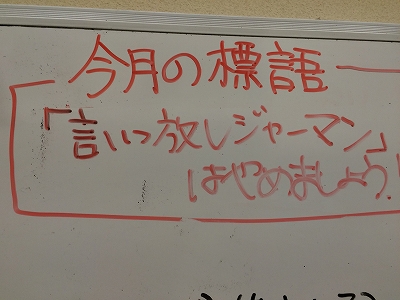 今月の標語
「言いっ放しジャーマン」
はやめましょう!